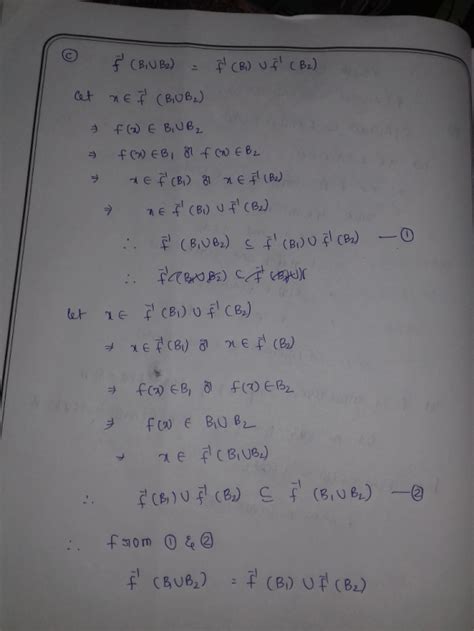 ⓒ f⁻¹ (B₁∪B₂) = f⁻¹ (B₁) ∪ f⁻¹ (B₂)
Let x ∈ f⁻¹ (B₁∪B₂)
⇒ f(x) ∈ B₁∪B₂
⇒ f(x) ∈ B₁ or f(x) ∈ B₂
⇒ x ∈ f⁻¹ (B₁) or x ∈ f⁻¹ (B₂)
⇒ x ∈ f⁻¹ (B₁) ∪ f⁻¹ (B₂)
∴ f⁻¹ (B₁∪B₂) ⊆ f⁻¹ (B₁) ∪ f⁻¹ (B₂) — ①
∴ f⁻¹ (B₁∪B₂) ⊂ f⁻¹
Let x ∈ f⁻¹ (B₁) ∪ f⁻¹ (B₂)
⇒ x ∈ f⁻¹ (B₁) or x ∈ f⁻¹ (B₂)
⇒ f(x) ∈ B₁ or f(x) ∈ B₂
⇒ f(x) ∈ B₁∪B₂
⇒ x ∈ f⁻¹ (B₁∪B₂)
∴ f⁻¹ (B₁) ∪ f⁻¹ (B₂) ⊆ f⁻¹ (B₁∪B₂) — ②
∴ from ① & ②
f⁻¹ (B₁∪B₂) = f⁻¹ (B₁) ∪ f⁻¹ (B₂)